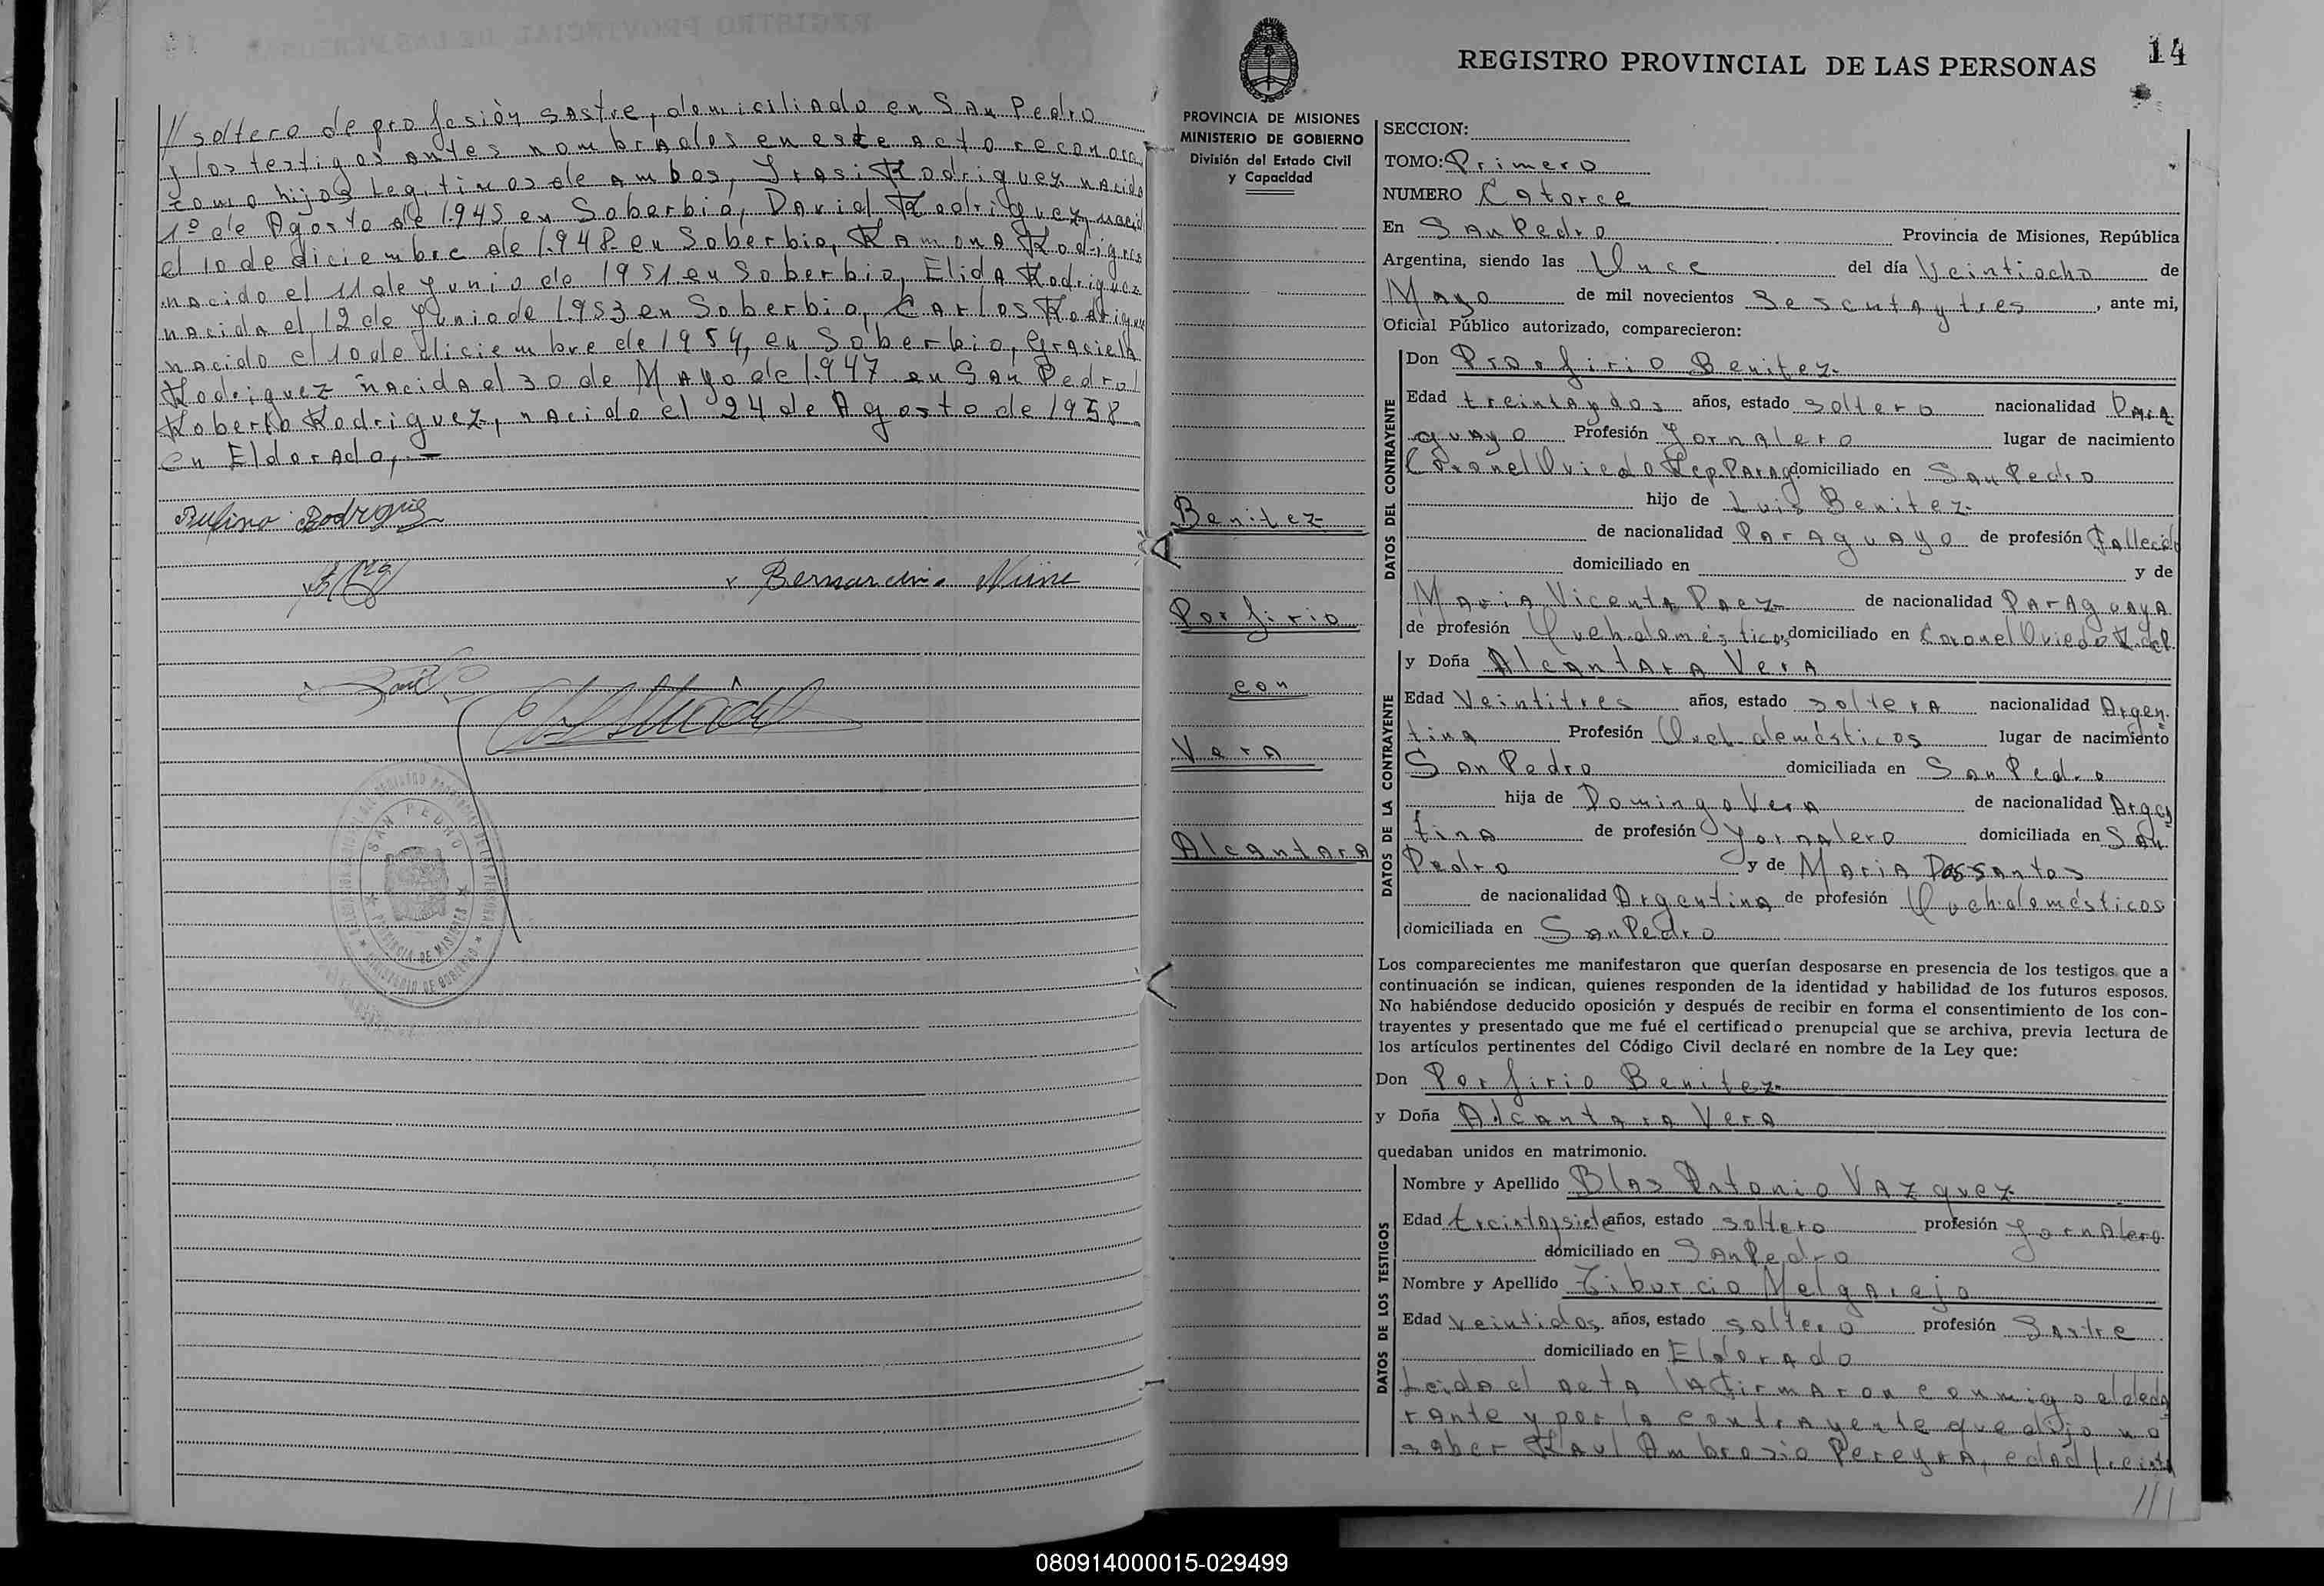 // soltero de profesiòn sastre, domiciliado en San Pedro
y los testigos antes nombrados en este acto reconoce
como hijos legitimos de ambos, Irasi Rodriguez nacido
1º de Agosto de 1945 en Soberbio, David Rodriguez nacid
el 10 de diciembre de 1.948 en Soberbio, Ramona Rodrigues
nacido el 11 de Junio de 1951 en Soberbio, Elida Rodriguez
nacida el 12 de Junio de 1.953 en Soberbio, Carlos Rodriguez
nacido el 10 de diciembre de 1954, en Soberbio, Graciela
Rodriguez nacida el 30 de Mayo de 1.947 en San Pedro
Roberto Rodriguez, nacido el 24 de Agosto de 1958
en Eldorado, . —
Rufino Rodrigue
Bernardina Nune
SAN PEDRO
PROVINCIA DE MISIONES
MINISTERIO DE GOBIERNO
PROVINCIA DE MISIONES
MINISTERIO DE GOBIERNO
División del Estado Civil
y Capacidad
Benitez
Porfirio
con
Vera
Alcantara
REGISTRO PROVINCIAL DE LAS PERSONAS 14
SECCION:
TOMO: Primero
NUMERO Catorce
En San Pedro Provincia de Misiones, República
Argentina, siendo las Once del día Veintiocho de
Mayo de mil novecientos Sesentaytres, ante mi,
Oficial Público autorizado, comparecieron:
DATOS DEL CONTRAYENTE
Don Prorfirio Benitez
Edad treintaydos años, estado soltero nacionalidad Para
guayo Profesión Jornalero lugar de nacimiento
Coronel Oviedo Rep. Parag domiciliado en San Pedro
hijo de Luis Benitez
de nacionalidad Paraguayo de profesión Fallecido
domiciliado en y de
Maria Vicenta Paez de nacionalidad Paraguaya
de profesión Queh. domésticos, domiciliado en Coronel Oviedo
DATOS DE LA CONTRAYENTE
y Doña Alcantara Vera
Edad Veintitres años, estado soltera nacionalidad Argen
tina Profesión Queh. domésticos lugar de nacimiento
San Pedro domiciliada en San Pedro
hija de Domingo Vera de nacionalidad Argen
tina de profesión Jornalero domiciliada en San
Pedro y de Maria Dossantos
de nacionalidad Argentina de profesión Queh. domésticos
domiciliada en San Pedro
Los comparecientes me manifestaron que querían desposarse en presencia de los testigos que a
continuación se indican, quienes responden de la identidad y habilidad de los futuros esposos.
No habiéndose deducido oposición y después de recibir en forma el consentimiento de los con-
trayentes y presentado que me fué el certificado prenupcial que se archiva, previa lectura de
los artículos pertinentes del Código Civil declaré en nombre de la Ley que:
Don Porfirio Benitez
y Doña Alcantara Vera
quedaban unidos en matrimonio.
DATOS DE LOS TESTIGOS
Nombre y Apellido Blas Antonio Vazquez
Edad treintaysiete años, estado soltero profesión Jornalero
domiciliado en San Pedro
Nombre y Apellido Tiburcio Melgarejo
Edad veintidos años, estado soltero profesión Sastre
domiciliado en Eldorado
Leida el acta la firmaron conmigo el decla
rante y por la contrayente que dijo no
saber Raul Ambrosio Pereyra, edad treinta
///
080914000015-029499